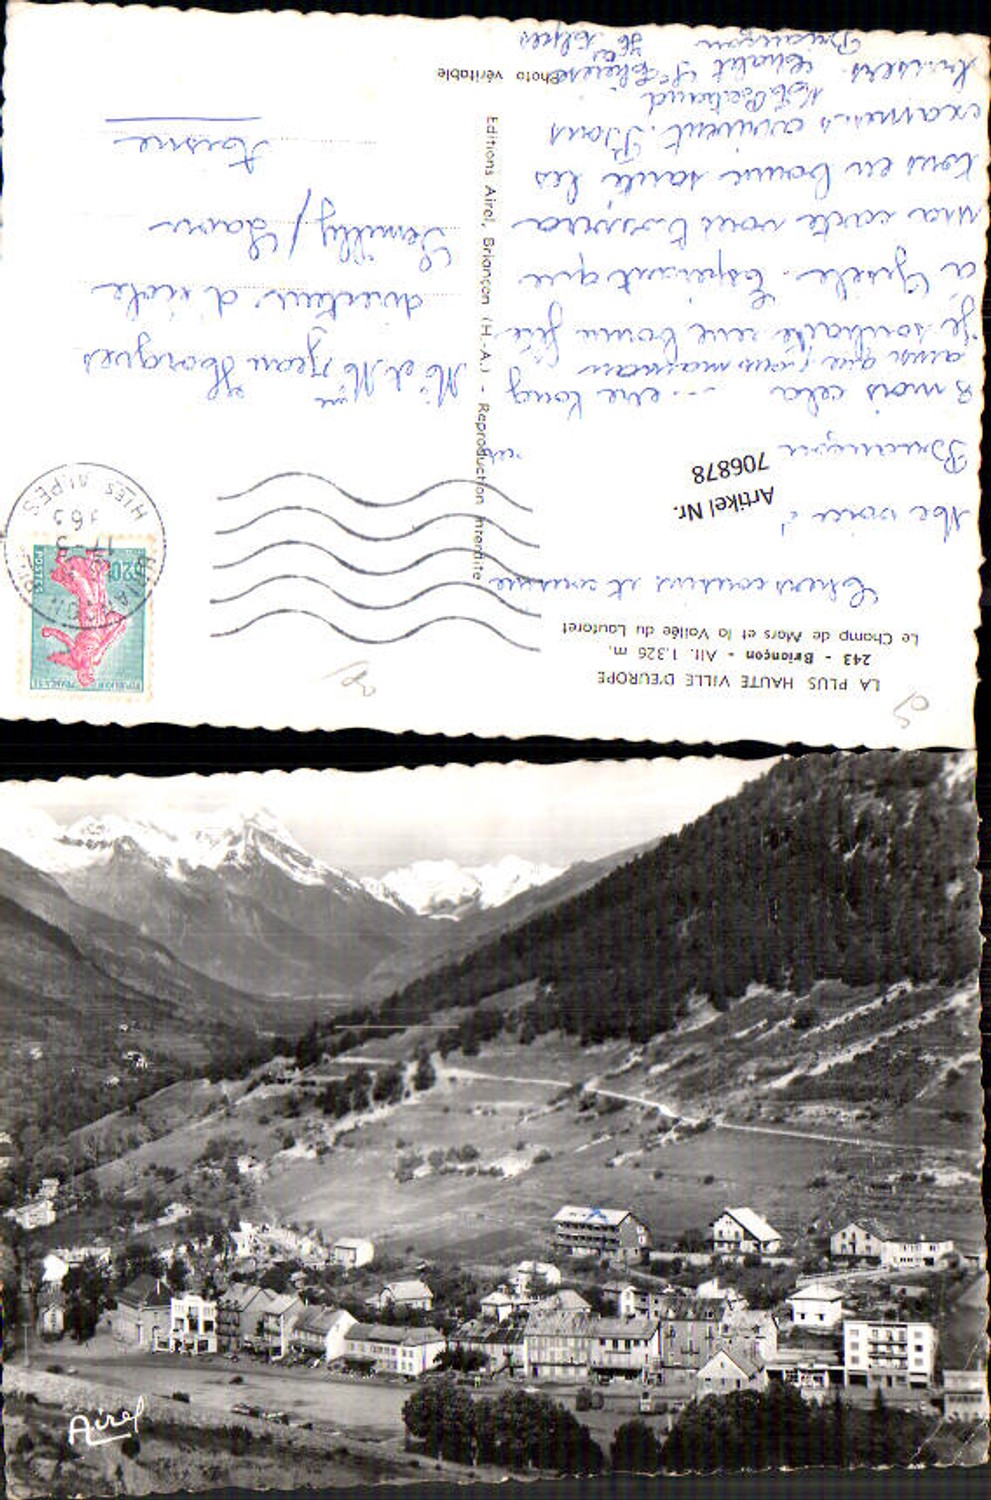 LA PLUS HAUTE VILLE D'EUROPE
243 - Briançon - Alt. 1.326 m.
Le Champ de Mars et la Vallée du Lautaret
Chers cousins et cousine
Me voici à
Briançon
8 mois cela
ainsi que
je souhaite une bonne fête
à Gisèle. Espérant que
ma carte vous trouvera
tous en bonne santé les
examens arrivent. Bons
baisers.
Chalet
Briançon
Htes Alpes
Artikel Nr.
706878
Editions Airel, Briançon (H.-A.) - Reproduction interdite
Photo véritable
Mr et Mme Jean Georges
directeur d'école
Semilly / Laon
Aisne
HTES ALPES
REPUBLIQUE FRANÇAISE
0,20
POSTES
Airel